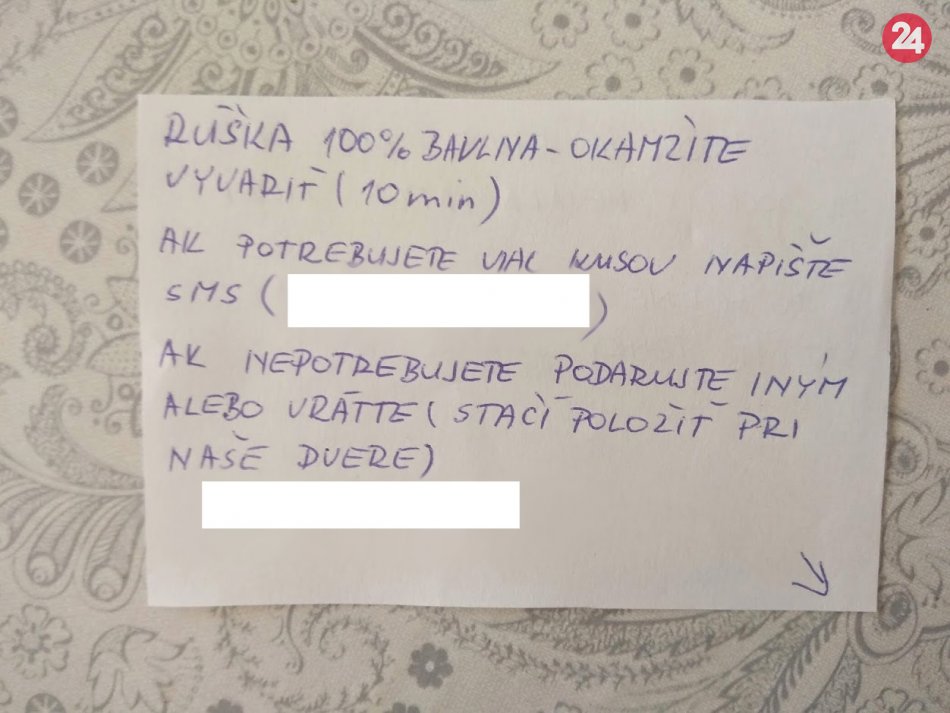 24
RÚŠKA 100% BAVLNA - OKAMŽITE
VYVARIŤ (10 min)
AK POTREBUJETE VIAC KUSOV NAPÍŠTE
SMS ( )
AK NEPOTREBUJETE PODARUJTE INÝM
ALEBO VRÁŤTE (STAČÍ POLOŽIŤ PRI
NAŠE DVERE)